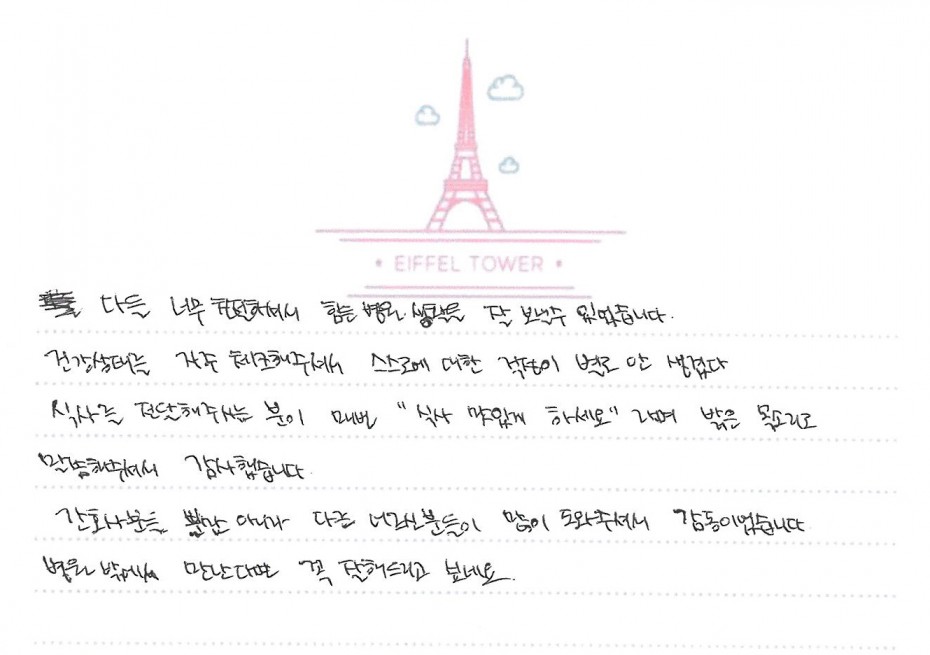 EIFFEL TOWER
다들 너무 친절하셔서 힘든 병원 생활을 잘 보낼수 있었습니다.
건강상태를 자주 체크해주셔서 스스로에 대한 걱정이 별로 안 생겼다
식사를 전달해주시는 분이 매번 "식사 맛있게 하세요" 라며 밝은 목소리로
말씀해주셔서 감사했습니다.
간호사분들 뿐만 아니라 다른 분들이 많이 도와주셔서 감동이었습니다
병원 밖에서 만난다면 꼭 전해드리고